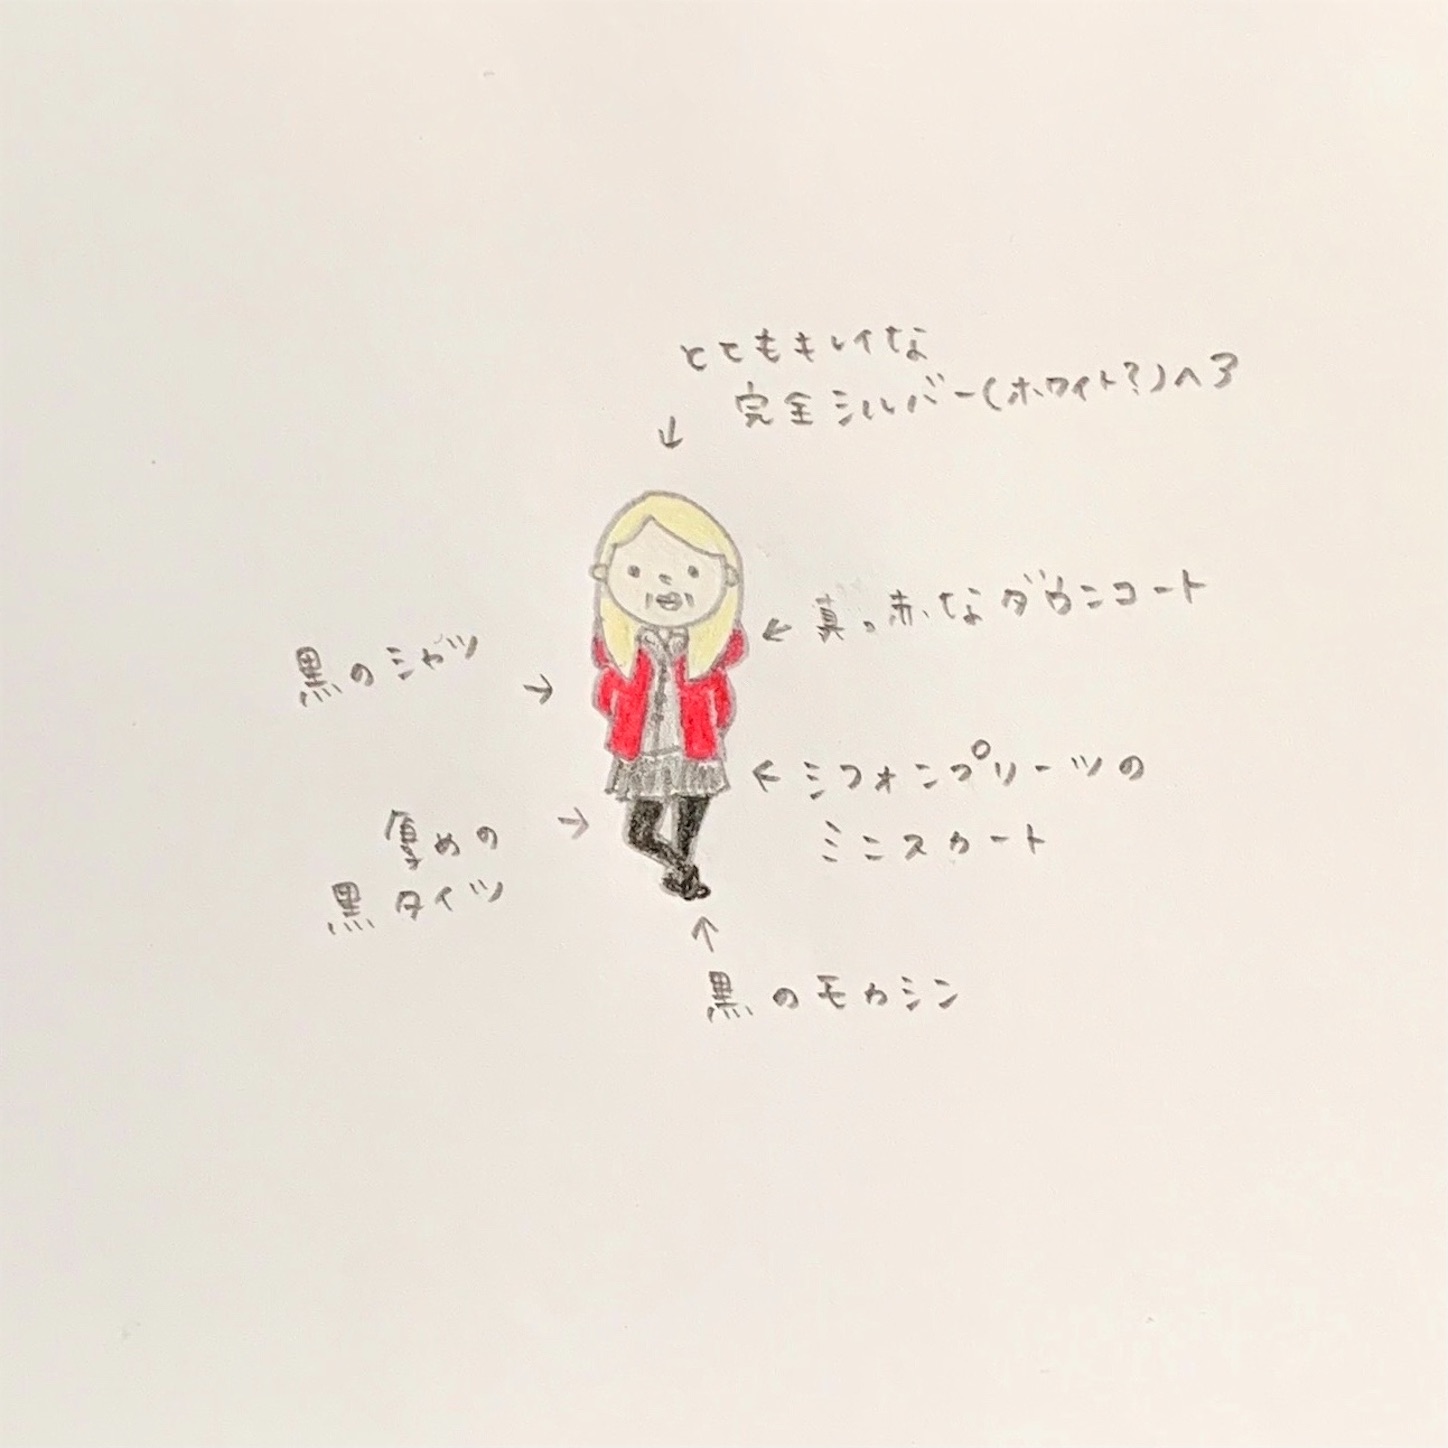 とてもキレイな
完全シルバー(ホワイト?)ヘア
真っ赤なダウンコート
黒のシャツ
シフォンプリーツの
ミニスカート
厚めの
黒タイツ
黒のモカシン